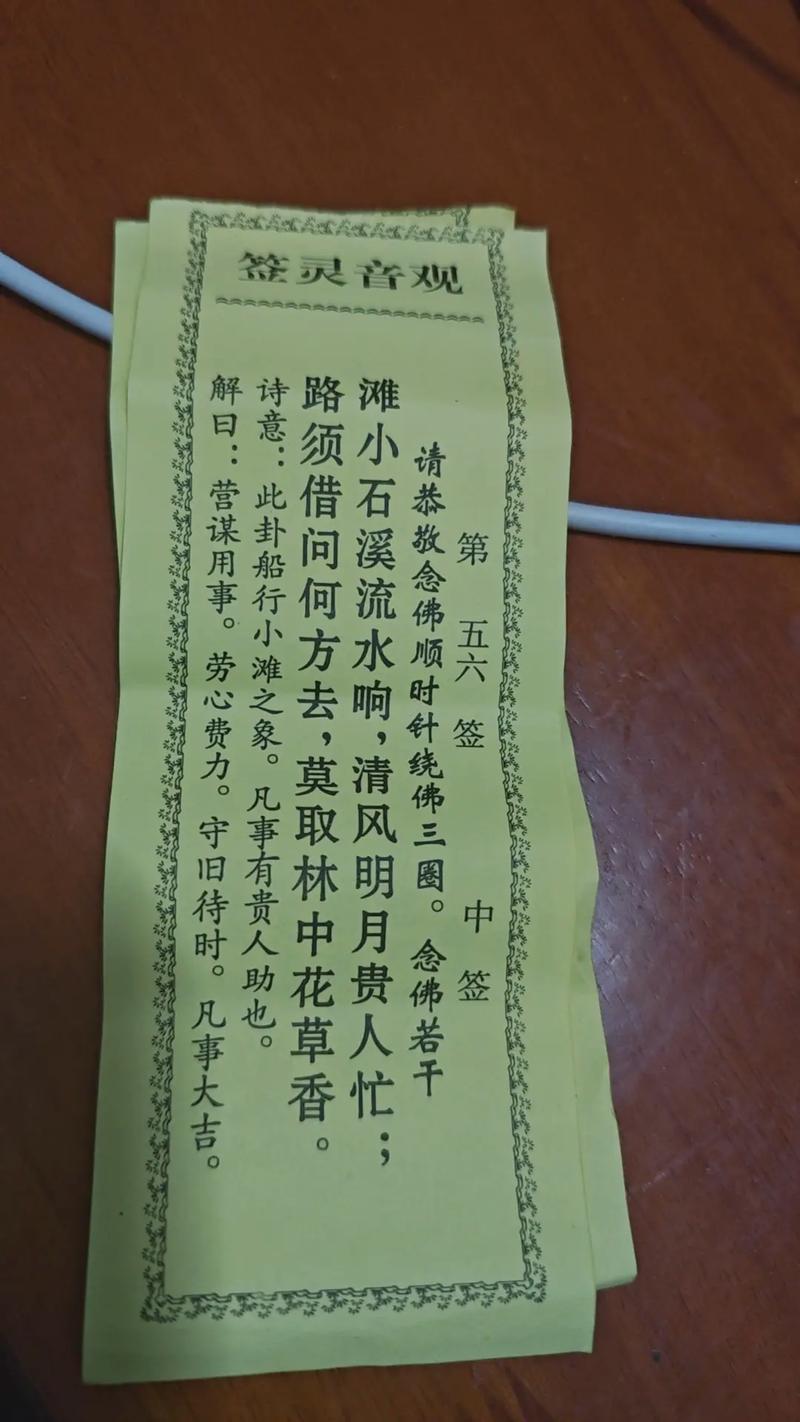 观音灵签
第五六签 中签
请恭敬念佛顺时针绕佛三圈。念佛若干
滩小石溪流水响，清风明月贵人忙；
路须借问何方去，莫取林中花草香。
诗意：此卦船行小滩之象。凡事有贵人助也。
解曰：营谋用事。劳心费力。守旧待时。凡事大吉。